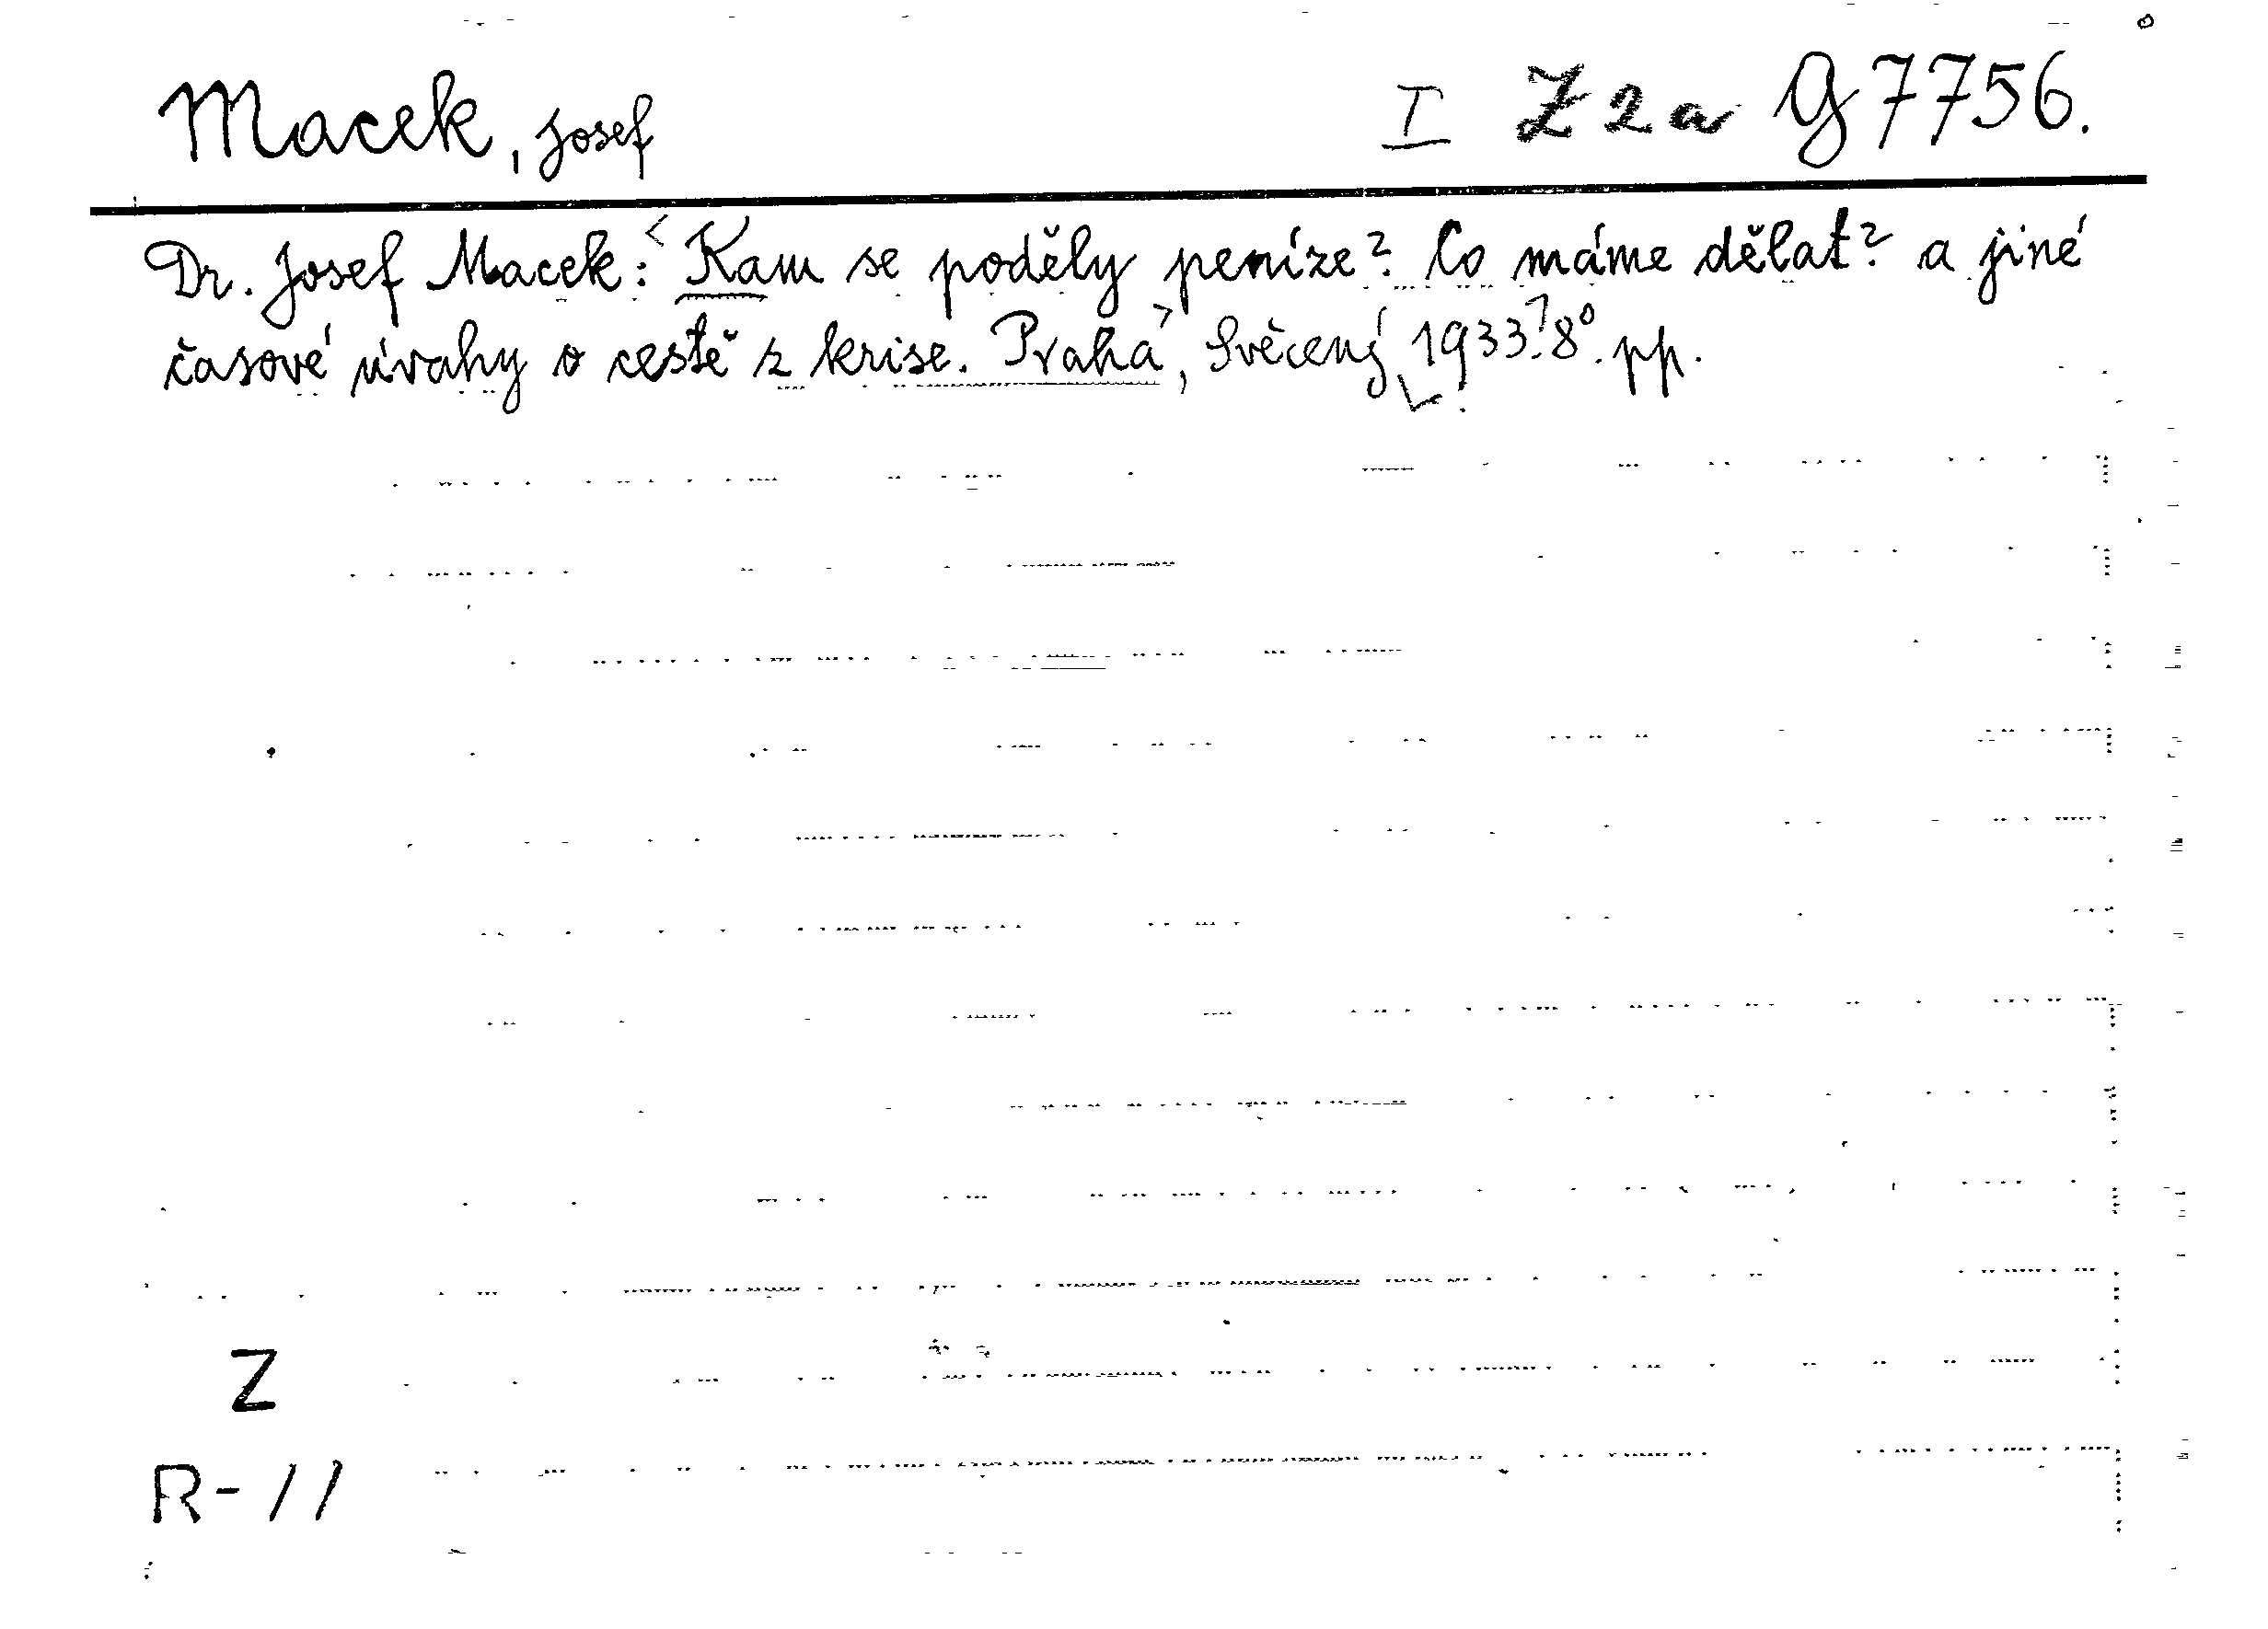 Macek, Josef I Z 2 a G 7756.
Dr. Josef Macek: <Kam se poděly peníze? Co máme dělat? a jiné
časové úvahy o cestě z krise. Praha>, Svěcený, 1933? 8°. pp.
Z
R-11